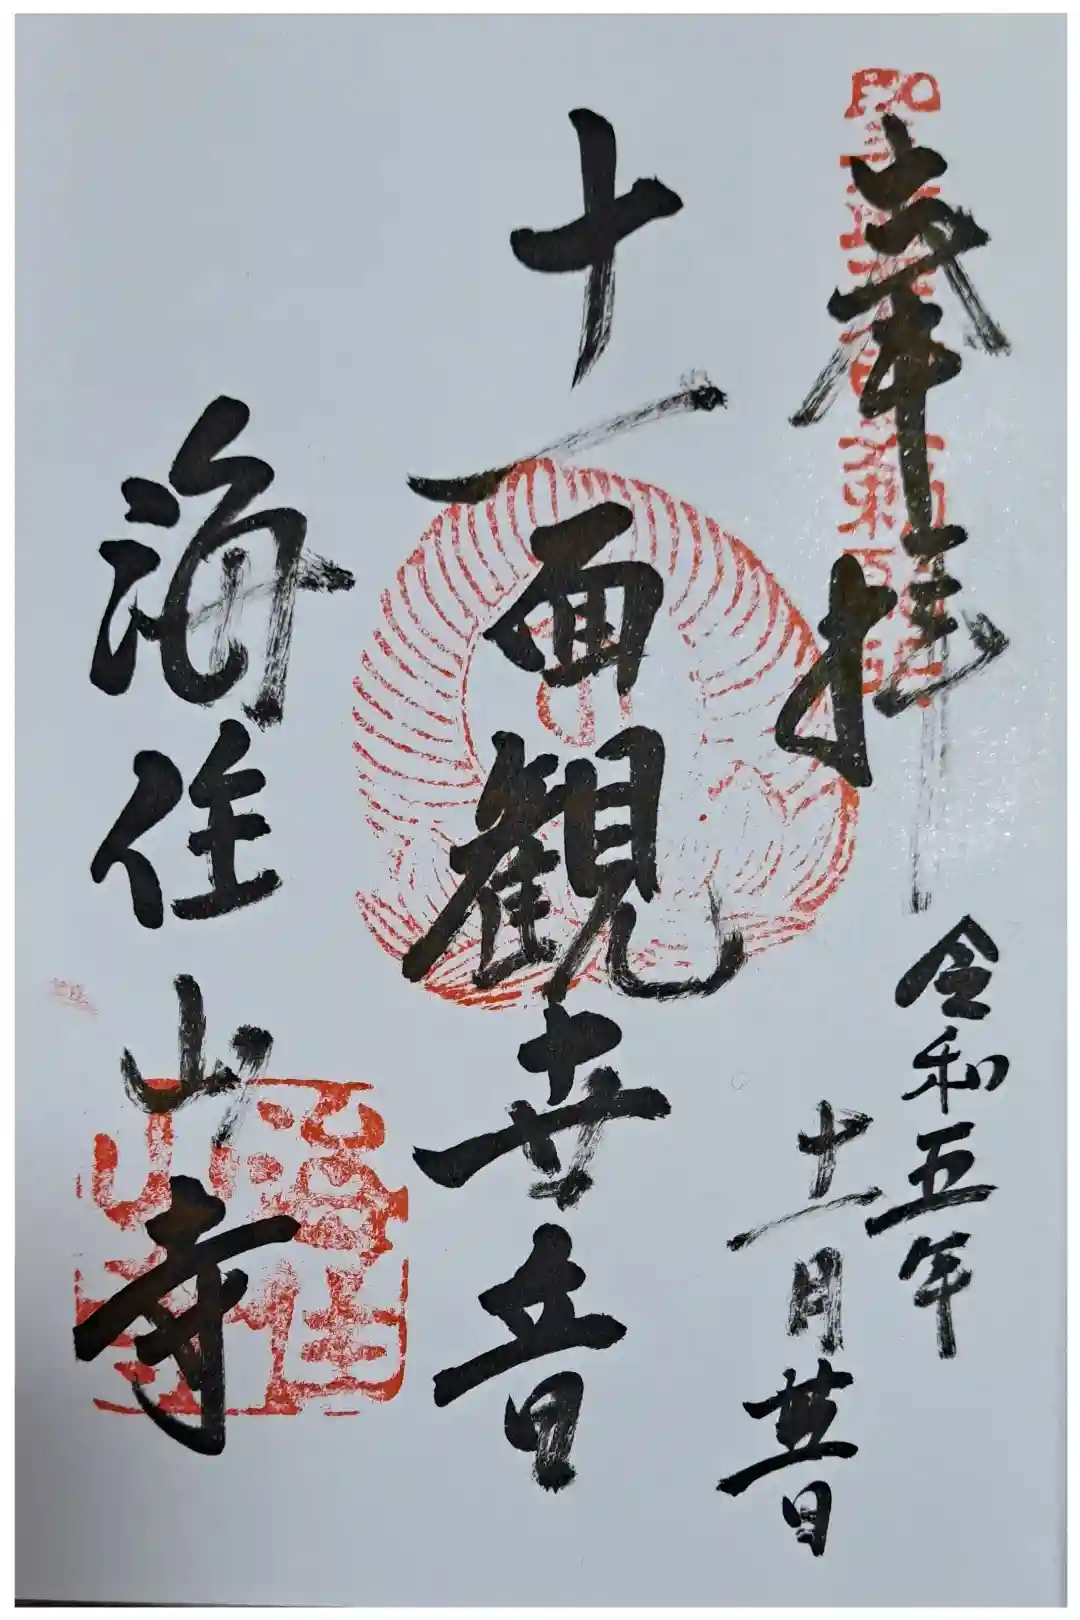 奉拝
令和五年
十一月廿五日
十一面観世音
海住山寺